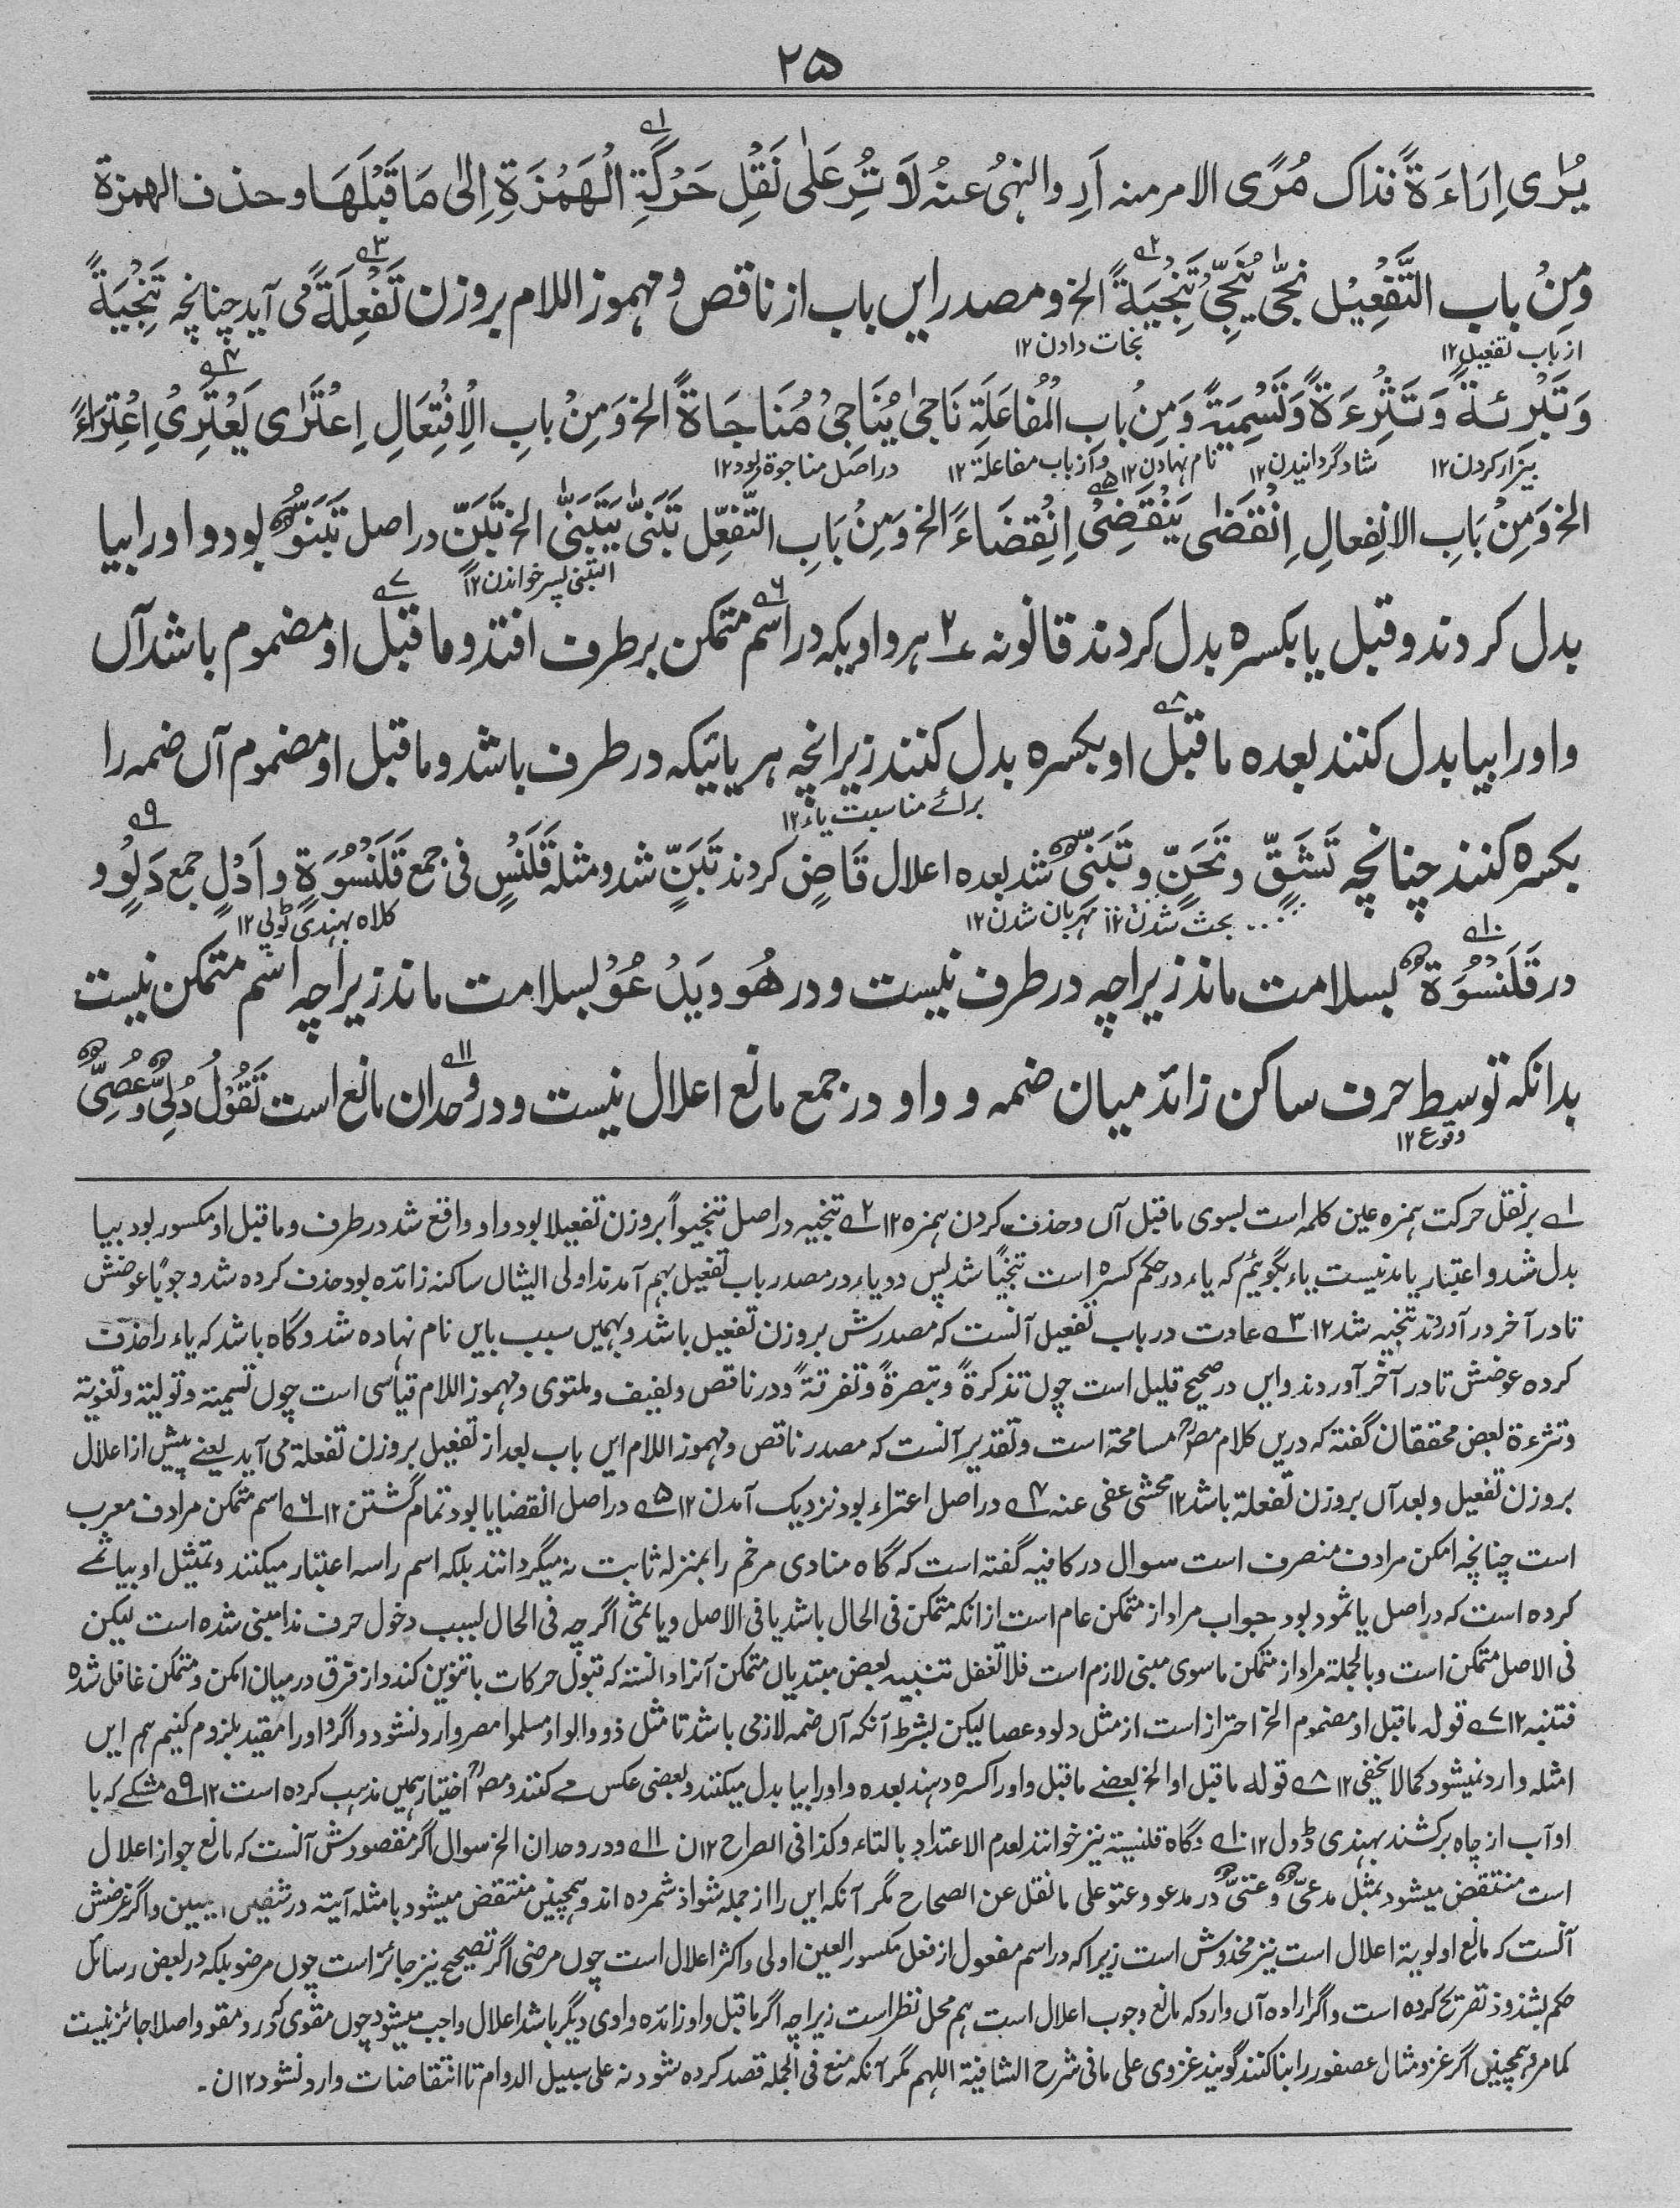 ۲۵
یُرٰی اِرَاءَةً فذاک مُرًی الامر منہ اَرِ والنہیُ عنہُ لَا تُرِ عَلٰی نَقْلِ حَرْکَةِ الْهَمْزَةِ اِلٰی مَا قَبْلَهَا و حذف الهمزة
وَمِنْ باب التَّفْعِیْل نَجّٰی یُنَجِّیْ تَنْجِیَةً الخ و مصدر ایں باب از ناقص و مہموز اللام بروزن تَفْعِلَةً می آید چنانچہ تَنْجِیَةً
از باب تفعیل ۱۲ نجات دادن ۱۲
وَتَبْرِئَةً وَتَثْرِءَةً وَتَسْمِیَةً وَمِنْ بابِ الْمُفَاعَلَةِ نَاجٰی یُنَاجِیْ مُنَاجَاةً الخ وَمِنْ بابِ الْاِفْتِعَالِ اِعْتَرٰی یَعْتَرِیْ اِعْتِرَاءً
بیزار کردن ۱۲ شاد گردانیدن ۱۲ نام نہادن ۱۲ و از باب مفاعلة ۱۲ در اصل مناجوة بود ۱۲
الخ وَمِنْ بَابِ الانْفِعالِ اِنْقَضٰی یَنْقَضِیْ اِنْقِضَاءً الخ وَمِنْ بَابِ التَّفَعُّل تَبَنّٰی یَتَبَنّٰی الخ تَبَنٍّ در اصل تَبَنُّوٌ بود واو را بیا
التبنی پسر خواندن ۱۲
بدل کردند و قبل یا بکسرہ بدل کردند قانونہ ۲ ہر واویکہ در اسم متمکن بر طرف افتد و ما قبل او مضموم باشد آں
واو را بیا بدل کنند بعدہ ما قبل او بکسرہ بدل کنند زیرانچہ ہر یائیکہ در طرف باشد و ما قبل او مضموم آں ضمہ را
برائے مناسبت یاء ۱۲
بکسرہ کنند چنانچہ تَشَقٍّ و تَحَنٍّ و تَبَنِّیٌ شد بعدہ اعلال قَاضٍ کردند تَبَنٍّ شد و مثلہ قَلَنْسٍ فی جمع قَلَنْسُوَةٍ و اَدْلٍ جمع دَلْوٍ و
بحث شدن ۱۲ مہربان شدن ۱۲ کلاہ بہندی ٹوپی ۱۲
در قَلَنْسُوَةٌ بسلامت ماند زیراچہ در طرف نیست و در هُوَ و یَدْعُوْ بسلامت ماند زیراچہ اسم متمکن نیست
بدانکہ توسط حرف ساکن زائد میان ضمہ و واو در جمع مانع اعلال نیست و در وُحدان مانع است تَقُوْلُ دُلِیٌّ وَعُصِیٌّ
وقوع ۱۲
۱ے بر نقل حرکت ہمزہ عین کلمہ است بسوی ما قبل آں و حذف کردن ہمزہ ۱۲ ۲ے تنجیہ در اصل تنجیواً بروزن تفعیلا بود واو واقع شد در طرف و ما قبل او مکسور بود بیا
بدل شد و اعتبار یا مد نیست یاء بگوئیم کہ یاء در حکم کسرہ است تنجیًّا شد پس دو یاء در مصدر باب تفعیل بہم آمدند اولی ایشال ساکنہ زائدہ بود حذف کردہ شد وجوبًا عوضش
تا در آخر در آوردند تنجیہ شد ۱۲ ۳ے عادت در باب تفعیل آنست کہ مصدرش بروزن تفعیل باشد و بہمیں سبب بایں نام نہادہ شد و گاہ باشد کہ یاء را حذف
کردہ عوضش تا در آخر آوردند و ایں در صحیح قلیل است چوں تذکرةً و تبصرةً و تفرقةً و در ناقص و لفیف و ملتوی و مہموز اللام قیاسی است چوں تسمیة و تولیة و تغویة
و تثرءة بعض محققان گفتہ کہ دریں کلام مصؒ مسامحة است و تقدیر آنست کہ مصدر ناقص و مہموز اللام ایں باب بعد از تفعیل بروزن تفعلة می آید یعنے پیش از اعلال
بروزن تفعیل و بعد آں بروزن تفعلة باشد ۱۲ محشی عفی عنہ ۴ے در اصل اعتراء بود نزدیک آمدن ۱۲ ۵ے در اصل انقضایا بود تمام گشتن ۱۲ ۶ے اسم متمکن مرادف معرب
است چنانچہ امکن مرادف منصرف است سوال در کافیہ گفتہ است کہ گاہ منادی مرخم را بمنزلہ ثابت نہ میگردانند بلکہ اسم راسہ اعتبار میکنند و تمثیل او بیاثمے
کردہ است کہ در اصل یا ثمود بود جواب مراد از متمکن عام است از انکہ متمکن فی الحال باشد یا فی الاصل و یا ثمی اگرچہ فی الحال بسبب دخول حرف ندا مبنی شدہ است لیکن
فی الاصل متمکن است و بالجملة مراد از متمکن ماسوی مبنی لازم است فلا تغفل تنبیہ بعض مبتدیاں متمکن آنرا دانستہ کہ قبول حرکات باتنوین کند و از فرق درمیان امکن و متمکن غافل شدہ
فتنبہ ۱۲ ۷ے قولہ ما قبل او مضموم الخ احتراز است از مثل دلو و عصا لیکن بشرط آنکہ آں ضمہ لازمی باشد تا مثل ذووالو او مسلموا مصر وارد نشود و اگر او را مقید بلزوم کنیم ہم ایں
امثلہ وارد نمیشود کما لا یخفی ۱۲ ۸ے قولہ ما قبل او الخ بعضے ما قبل واو را کسرہ دہند بعدہ واو را بیا بدل میکنند و بعضی عکس مے کنند و مصؒ اختیار ہمیں مذہب کردہ است ۱۲ ۹ے مشکے کہ با
او آب از چاہ بر کشند بہندی ڈول ۱۲ ۱۰ے و گاہ قلنسیتہ نیز خوانند لعدم الاعتداد بالتاء و کذا فی الصراح ۱۲ ن ۱۱ے و در وحدان الخ سوال اگر مقصودش آنست کہ مانع جواز اعلال
است منتقض میشود بمثل مدعیٌّ و عتیٌّ در مدعو و عتو علی ما نقل عن الصحاح مگر آنکہ ایں را از جملہ شواذ شمردہ اند و ہمچنیں منتقض میشود بامثلہ آیتہ در شقیں و اگر غرضش
آنست کہ مانع اولویة اعلال است نیز مخدوش است زیرا کہ در اسم مفعول از فعل مکسور العین اولی و اکثر اعلال است چوں مرضی اگر تصحیح نیز جائز است چوں مرضو بلکہ در بعض رسائل
حکم بشذوذ تصریح کردہ است و اگر ارادہ آں دارد کہ مانع وجوب اعلال است ہم محل نظر است زیراچہ اگر ما قبل واو زائدہ واوی دیگر باشد اعلال واجب میشود چوں مقوی کہ در و مقوو اصلا جائز نیست
کما مر و ہمچنیں اگر غزو مثال عصفور را بنا کنند گویند غزوی علی ما فی شرح الشافیة اللہم مگر آنکہ منع فی الجملہ قصد کردہ شود نہ علی سبیل الدوام تا انتقاضات وارد نشود ۱۲ ن۔